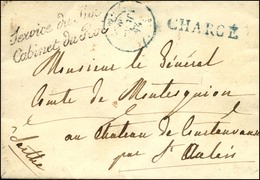 Service du Roi
Cabinet du Roi
CHARGÉ
Monsieur le Général
Comte de Montesquiou
au Chateau de Courtanvaux
par St Calais
Sarthe